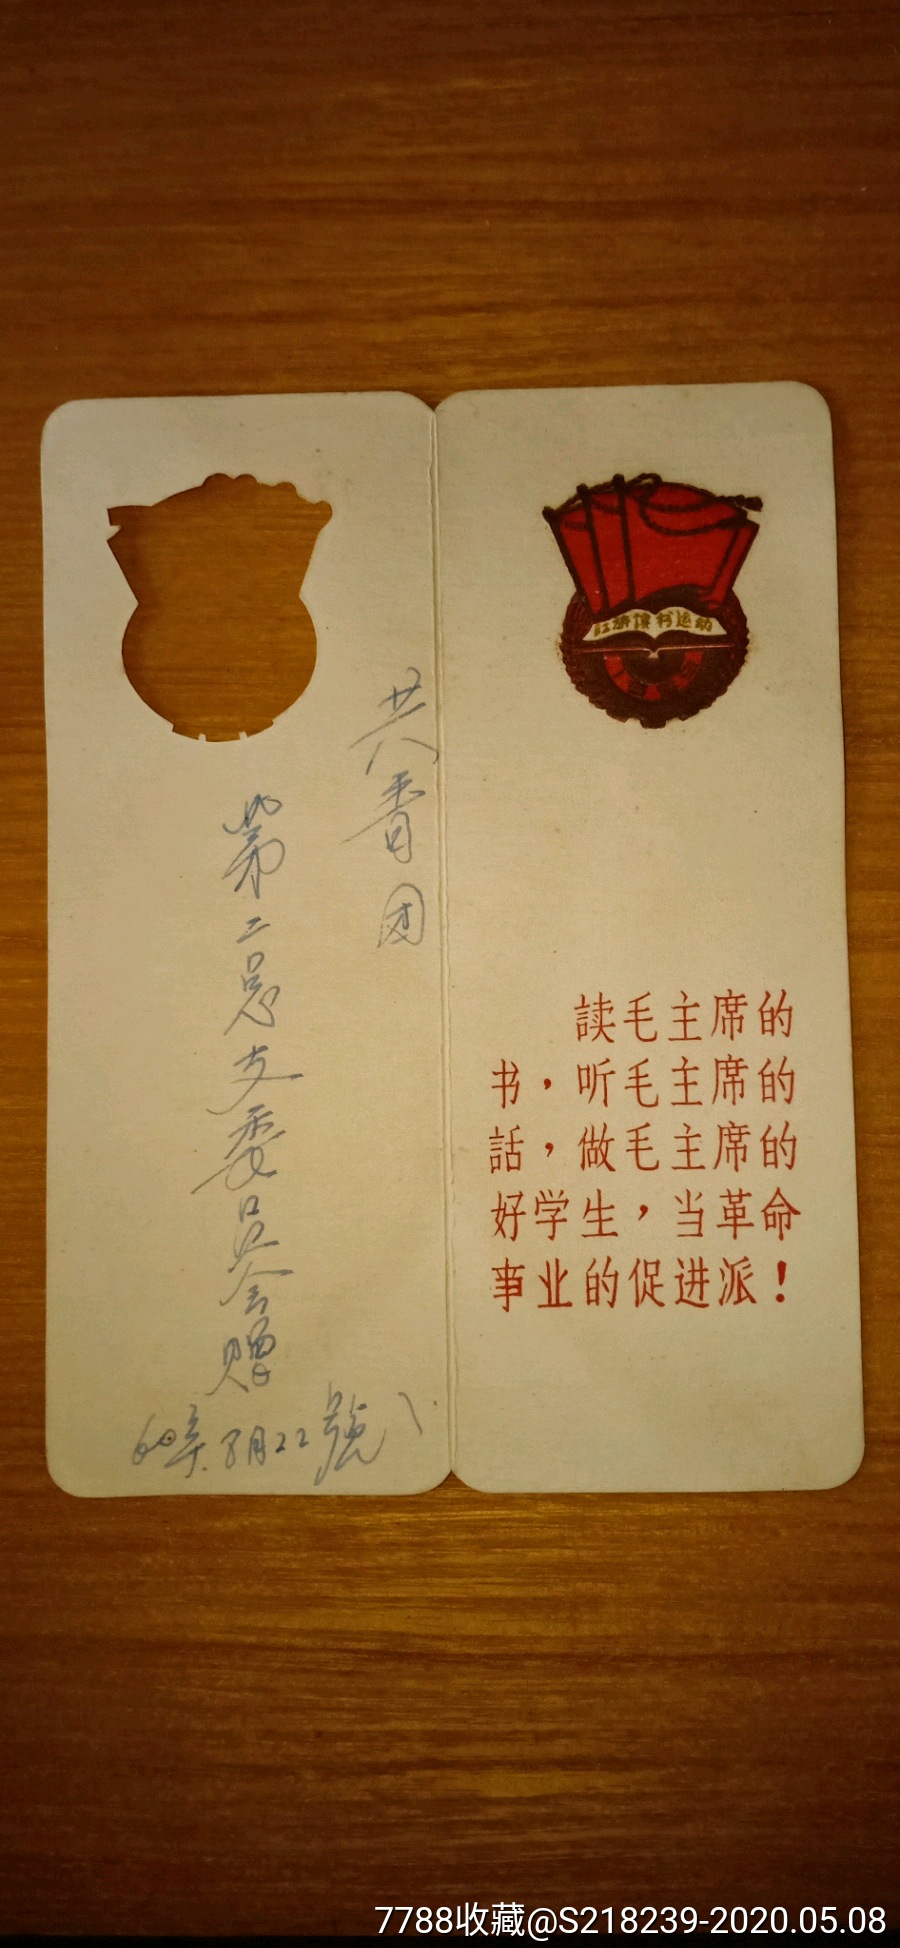 共青团
第二总支委员会赠
60年.8月22號
红旗读书运动
读毛主席的
书，听毛主席的
話，做毛主席的
好学生，当革命
事业的促进派！
7788收藏@S218239-2020.05.08